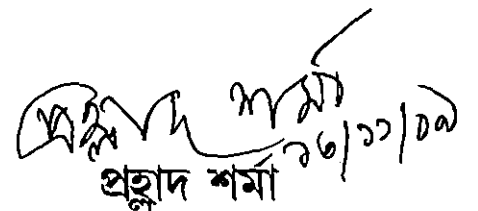 প্রহ্লাদ শর্মা
১৬/১১/০৯
প্রহ্লাদ শর্মা